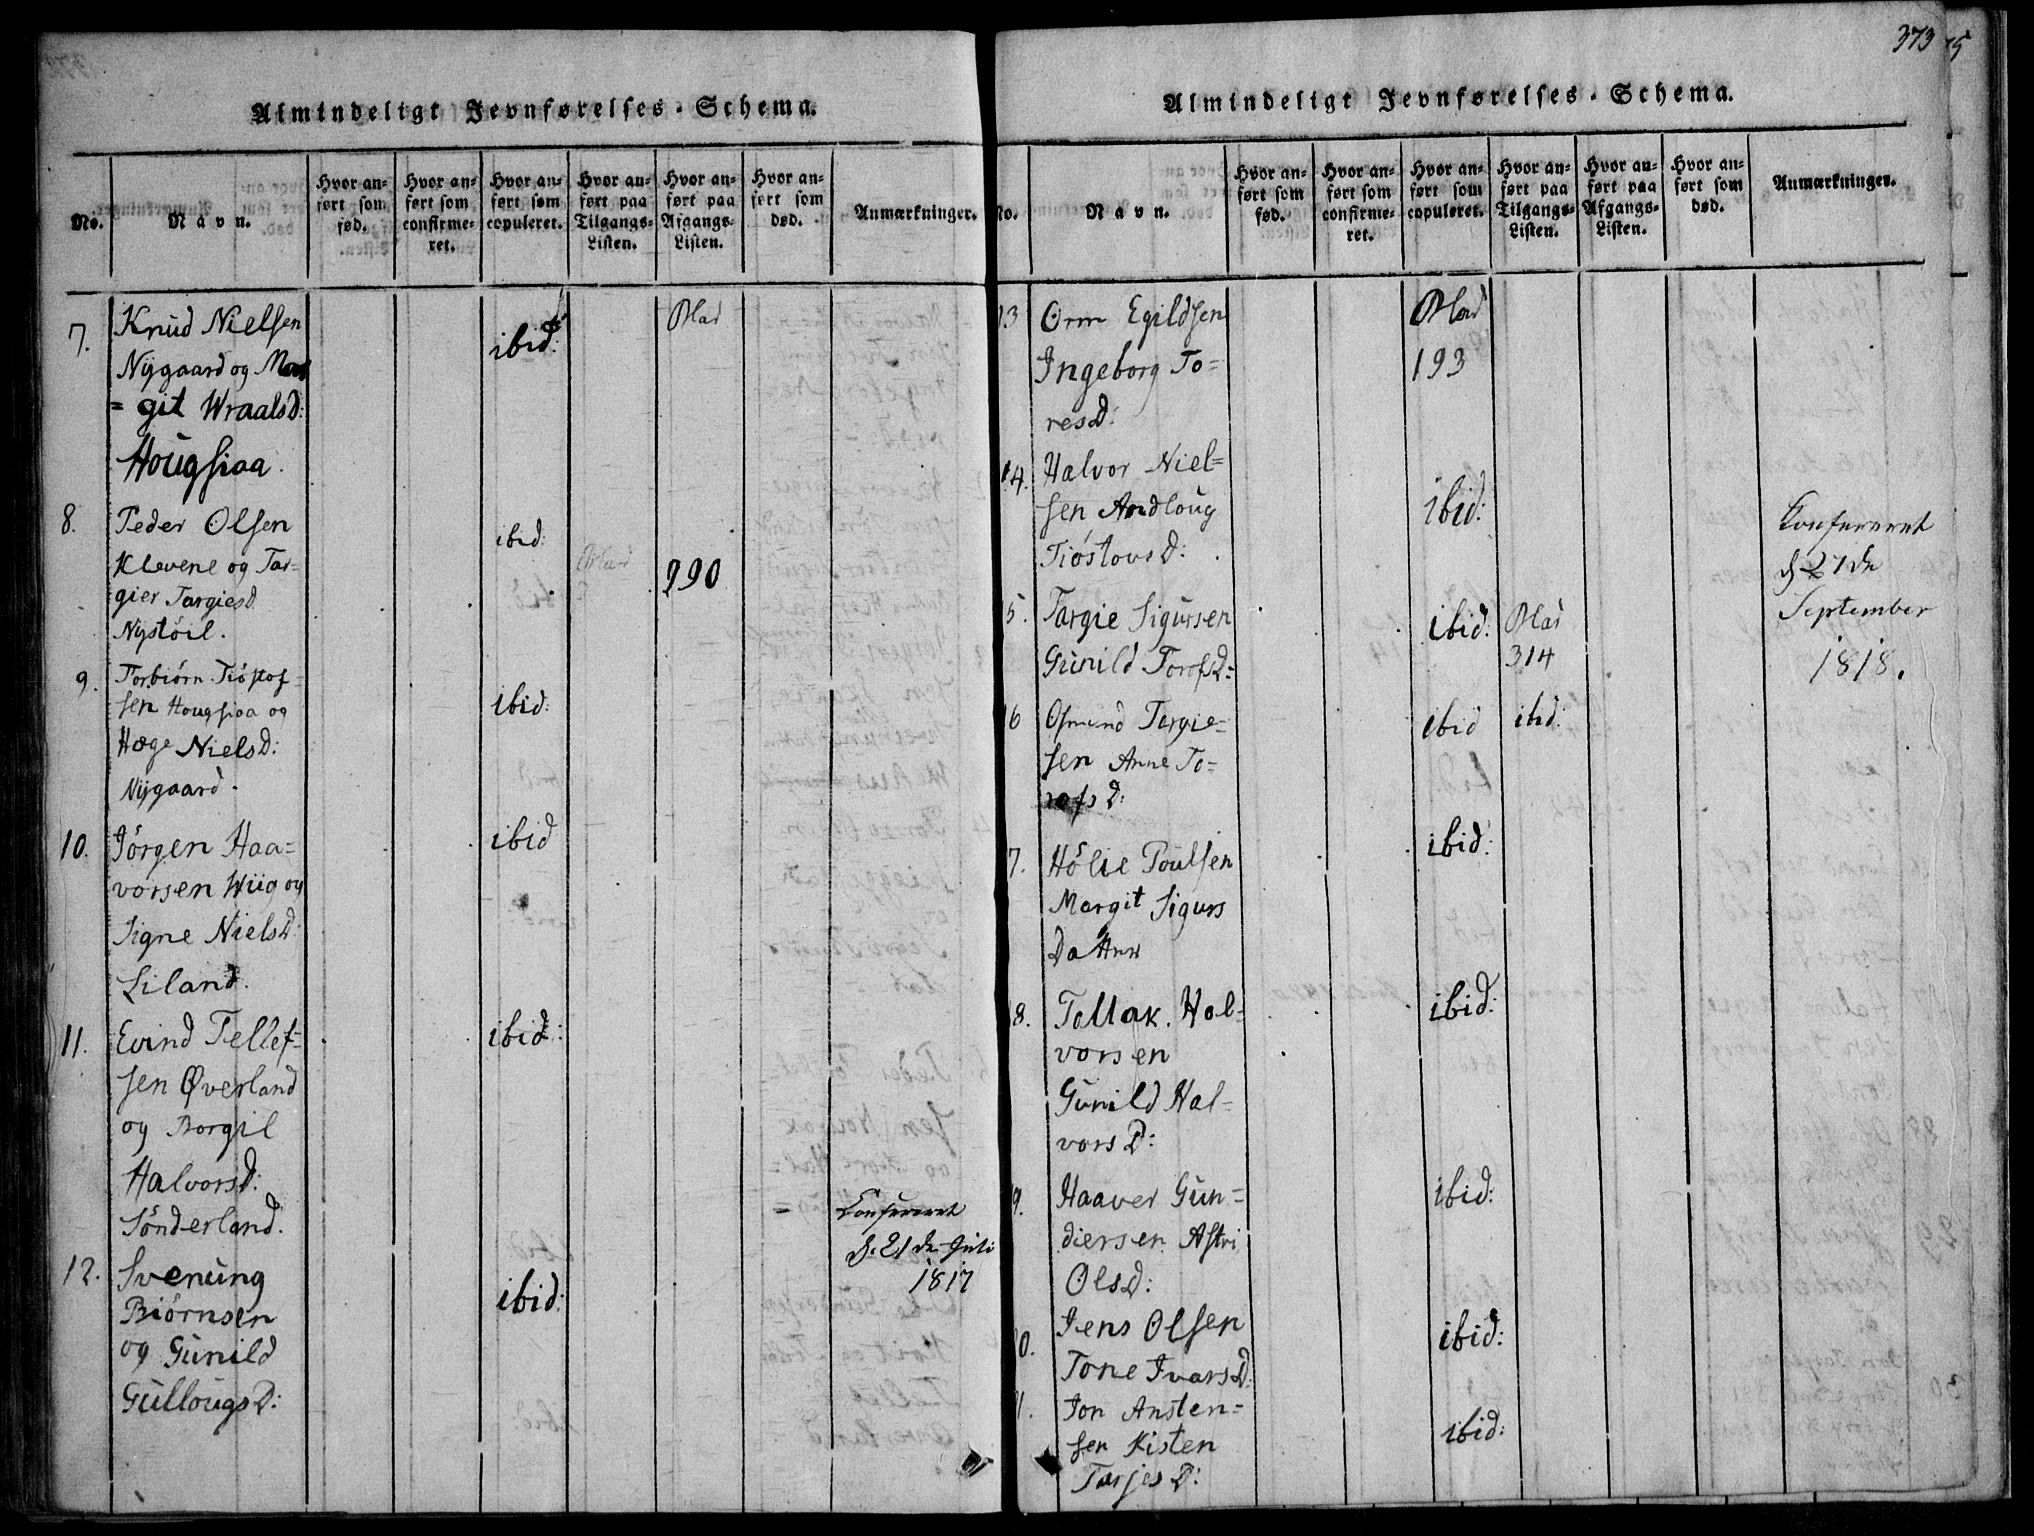 Almindeligt Jevnførelses-Schema.
No.
Navn.
Hvor an=
ført som
fød.
Hvor an=
ført som
confirme=
ret.
Hvor an=
ført som
copuleret.
Hvor an=
ført paa
Tilgangs-
Listen.
Hvor an=
ført paa
Afgangs-
Listen.
Hvor an=
ført som
død.
Anmærkninger.
7. Knud Nielsen ibid: Blad
Nygaard og Mar
= git Wraalsd:
Hougsiaa.
8. Peder Olsen ibid:
Klevene og Tar= Blad 290
gier Targiesd.
Nystöil.
9. Torbiörn Tiöstof=
sen Hougsiaa og ibid:
Hæge Nielsd:
Nygaard.
10. Jörgen Haa= ibid
vorsen Wiig og
Signe Nielsd:
Liland.
11. Evind Tellef= ibid:
sen Øverland
og Borgil
Halvorsd:
Sönderland.
Confereret
d. 21de Juli
1817
12. Svenung ibid:
Biörnsen
og Gunild
Gullougsd:
373
75
Almindeligt Jevnførelses-Schema.
No.
Navn.
Hvor an=
ført som
fød.
Hvor an=
ført som
confirme=
ret.
Hvor an=
ført som
copuleret.
Hvor an=
ført paa
Tilgangs-
Listen.
Hvor an=
ført paa
Afgangs-
Listen.
Hvor an=
ført som
død.
Anmærkninger.
13 Orm Egildsen Blad
Ingeborg To= 193
resd:
14. Halvor Niel=
sen Andloug ibid:
Tiöstovsd:
Confereret
d 27de
September
1818.
5. Targie Sigursen ibid: Blad
Gunild Torofsd: 314
16 Osmund Targie= ibid ibid:
sen Anne To=
rofsd:
7. Hölie Poulsen ibid:
Margit Sigurs
Datter
8. Tollak. Hal= ibid:
vorsen
Gunild Hal=
vorsd:
9. Haaver Gun= ibid:
diersen Astri
Olsd:
0. Jens Olsen ibid:
Tone Ivarsd:
1. Jon Ansten=
sen Kisten ibid:
Tarjesd: